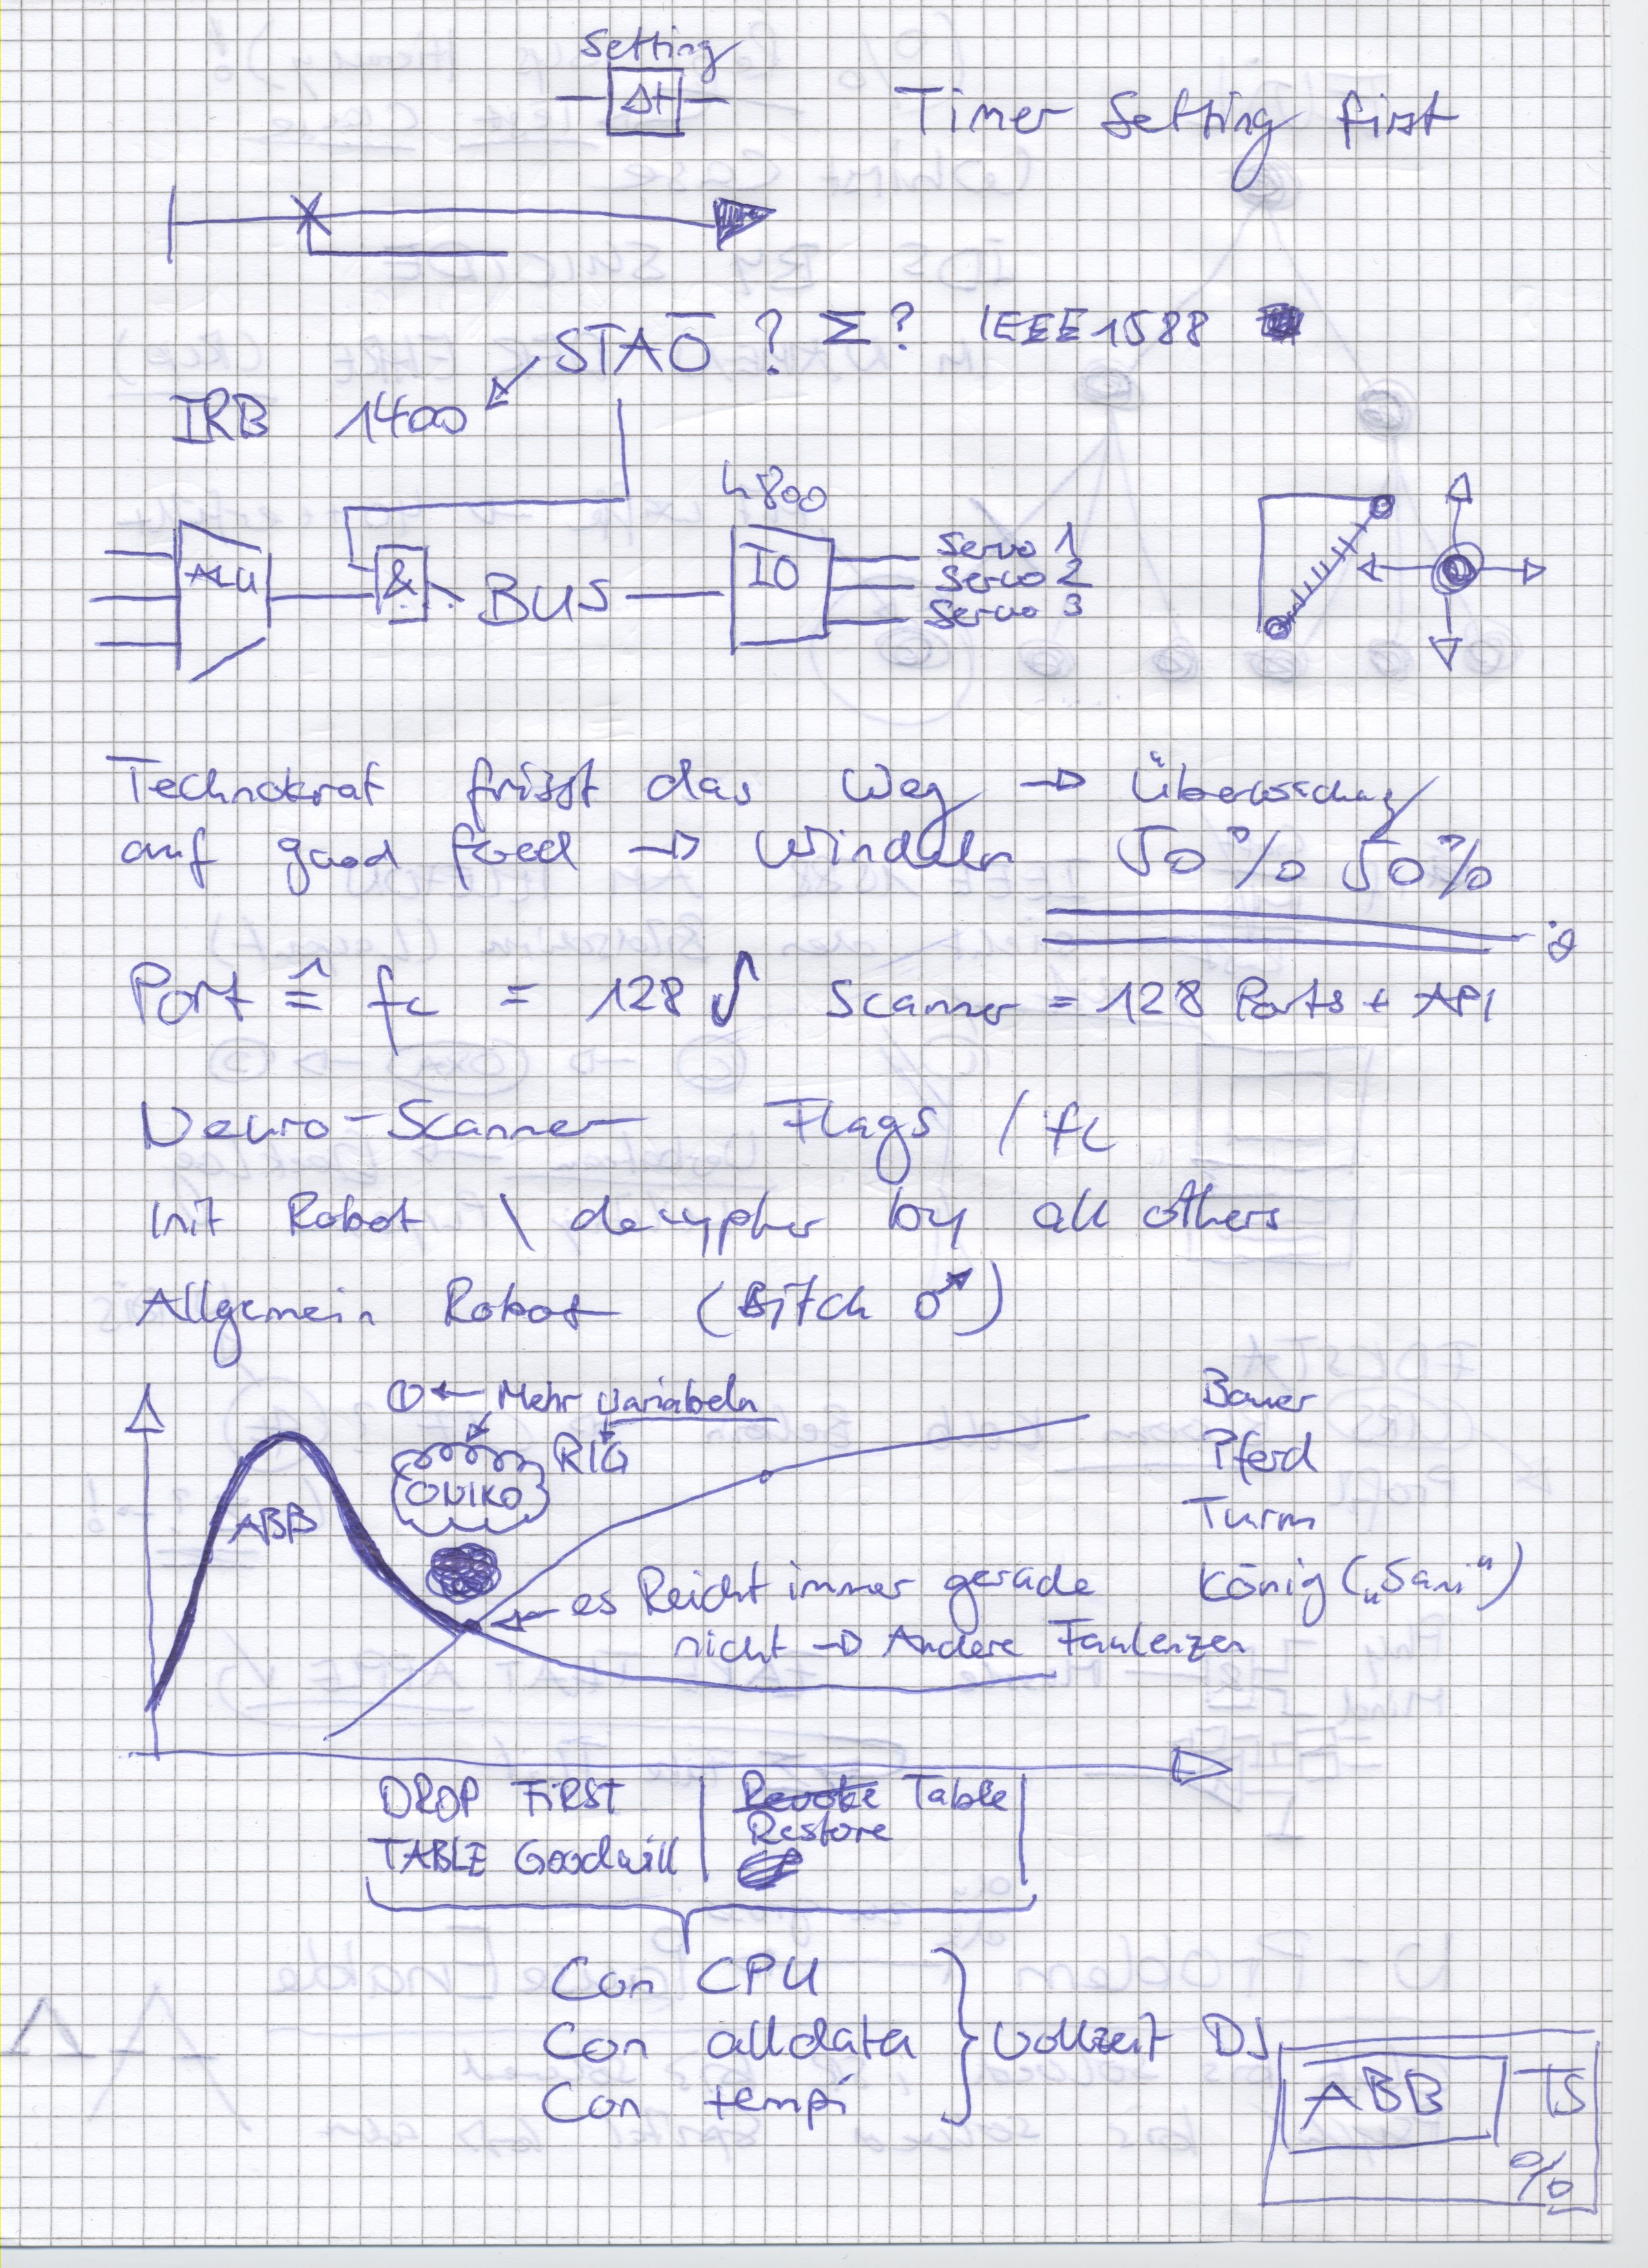 Setting
Δt
Timer Setting first
STAO ? Σ ? IEEE 1588
IRB 1400
4800
ALU
&
BUS
IO
Servo 1
Servo 2
Servo 3
Technokrat frisst das Weg → 
auf good food → Windeln 50% 50%
Port ≙ fc = 128 ∫ Scanner = 128 Ports + API
Neuro-Scanner Flags / fc
Init Robot \ decypher by all others
Allgemein Robot (Bitch ♂)
← Mehr Variabeln
RIG
ABB
Bauer
Pferd
Turm
König („Sani“)
← es Reicht immer gerade
nicht → Andere Faulenzer
DROP FIRST
TABLE Goodwill
Revoke Table
Restore
Con CPU
Con alldata
Con tempi
Vollzeit DJ
ABB
TS
%